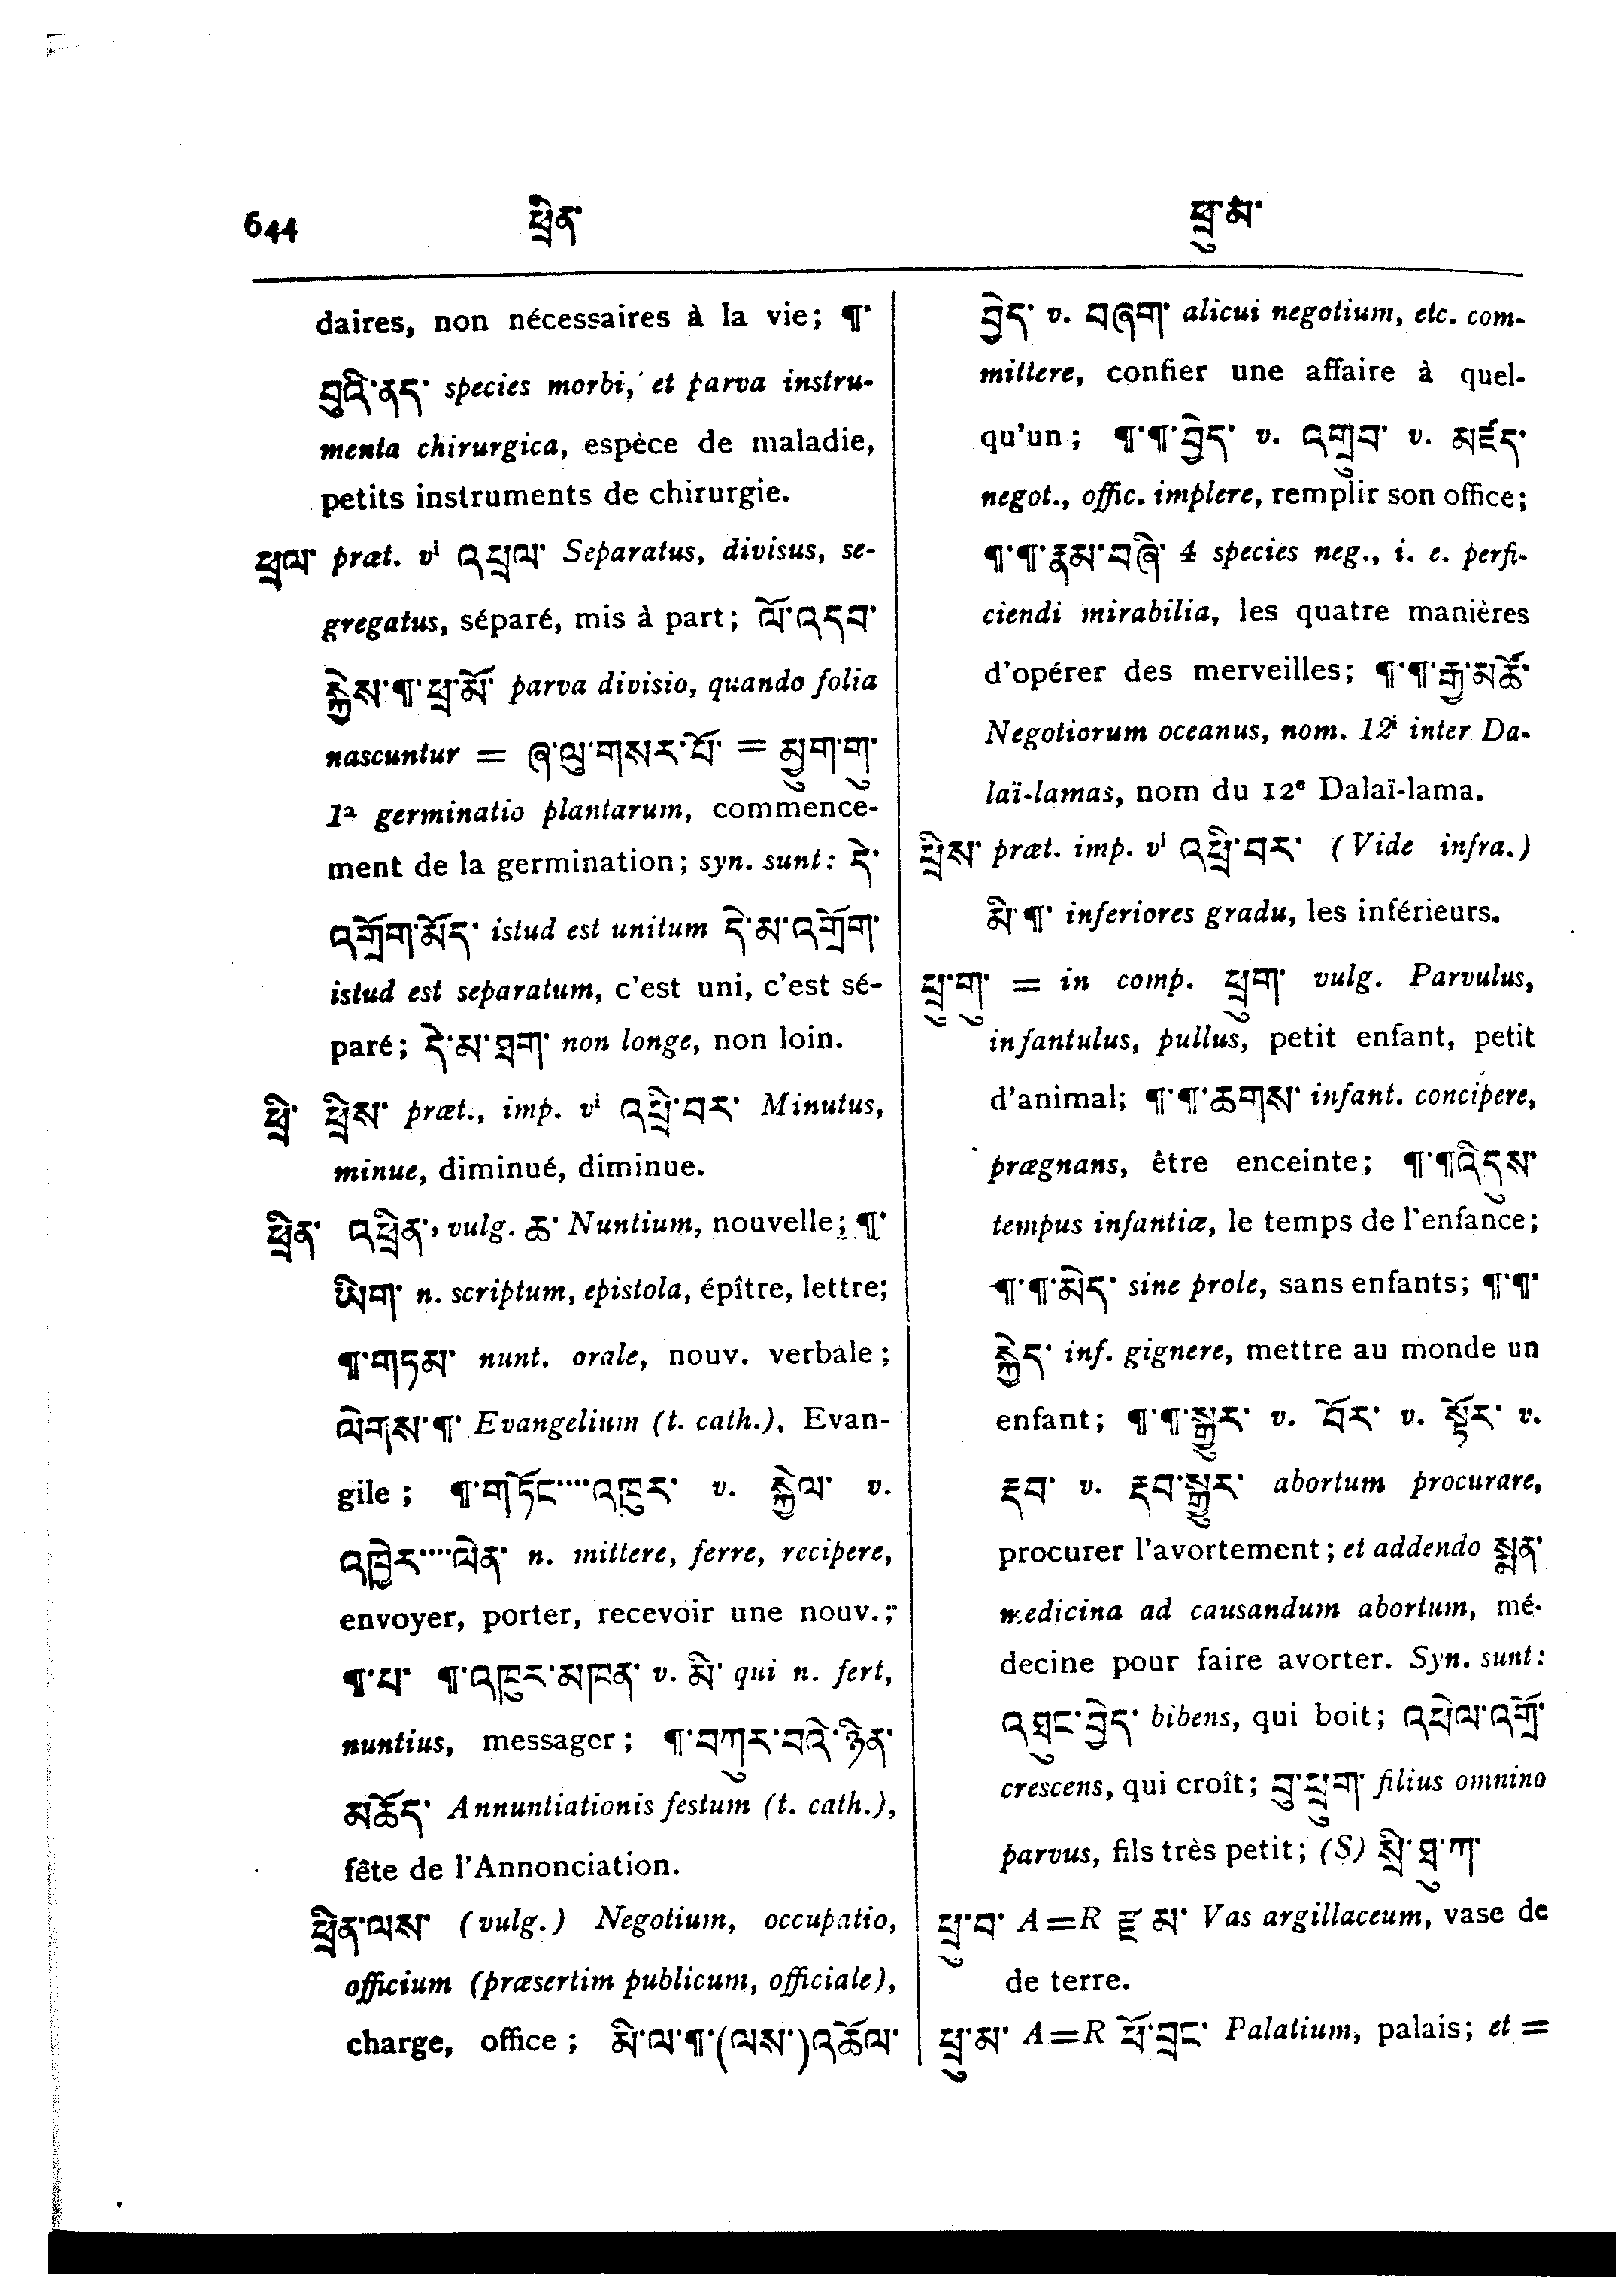 644
ཕྲིན་
ཕྲུ་མ་
daires, non nécessaires à la vie; ¶་
བུའི་ནད་ species morbi, et parva instru-
menta chirurgica, espèce de maladie,
petits instruments de chirurgie.
ཕྲལ་ præt. vi འཕྲལ་ Separatus, divisus, se-
gregatus, séparé, mis à part; ལོ་འདབ་
སྐྱེས་¶་ཕྲ་མོ་ parva divisio, quando folia
nascuntur = ཞ་ལུ་གསར་པོ་ = མྱུག་གུ་
1a germinatio plantarum, commence-
ment de la germination; syn. sunt: དེ་
འགྲོག་མོད་ istud est unitum དེ་མ་འགྲོག་
istud est separatum, c'est uni, c'est sé-
paré; དེ་མ་ཐག་ non longe, non loin.
ཕྲི་ ཕྲིས་ præt., imp. vi འཕྲི་བར་ Minutus,
minue, diminué, diminue.
ཕྲིན་ འཕྲིན་, vulg. ཆ་ Nuntium, nouvelle; ¶་
ཡིག་ n. scriptum, epistola, épître, lettre;
¶་གཏམ་ nunt. orale, nouv. verbale;
ལེགས་¶་ Evangelium (t. cath.), Evan-
gile; ¶་གཏོང་...འཁུར་ v. སྐྱེལ་ v.
འཁྱེར་...ལེན་ n. mittere, ferre, recipere,
envoyer, porter, recevoir une nouv.;
¶་པ་ ¶་འཁུར་མཁན་ v. མི་ qui n. fert,
nuntius, messager; ¶་བཀུར་བའི་ཉིན་
མཆོད་ Annuntiationis festum (t. cath.),
fête de l'Annonciation.
ཕྲིན་ལས་ (vulg.) Negotium, occupatio,
officium (præsertim publicum, officiale),
charge, office; མི་ལ་¶་(ལས་)འཆོལ་
བྱེད་ v. བཞག་ alicui negotium, etc. com-
mittere, confier une affaire à quel-
qu'un; ¶་¶་བྱེད་ v. འགྲུབ་ v. མཛད་
negot., offic. implere, remplir son office;
¶་¶་རྣམ་བཞི་ 4 species neg., i. e. perfi-
ciendi mirabilia, les quatre manières
d'opérer des merveilles; ¶་¶་རྒྱ་མཚོ་
Negotiorum oceanus, nom. 12i inter Da-
laï-lamas, nom du 12e Dalaï-lama.
ཕྲིས་ præt. imp. vi འཕྲི་བར་ (Vide infra.)
མི་¶་ inferiores gradu, les inférieurs.
ཕྲུ་གུ་ = in comp. ཕྲུག་ vulg. Parvulus,
infantulus, pullus, petit enfant, petit
d'animal; ¶་¶་ཆགས་ infant. concipere,
prægnans, être enceinte; ¶་¶འིདུས་
tempus infantiæ, le temps de l'enfance;
¶་¶་མེད་ sine prole, sans enfants; ¶་¶་
སྐྱེད་ inf. gignere, mettre au monde un
enfant; ¶་¶་སྐྱུར་ v. བོར་ v. སྟོར་ v.
རྡབ་ v. རྡབ་སྐྱུར་ abortum procurare,
procurer l'avortement; et addendo སྨན་
medicina ad causandum abortum, mé-
decine pour faire avorter. Syn. sunt:
འཐུང་བྱེད་ bibens, qui boit; འཕེལ་འགྲོ་
crescens, qui croît; བུ་ཕྲུག་ filius omnino
parvus, fils très petit; (S) སྲི་ཐུ་ཀ་
ཕྲུ་བ་ A=R རྫ་མ་ Vas argillaceum, vase de
de terre.
ཕྲུ་མ་ A=R ཕོ་བྲང་ Palatium, palais; et =